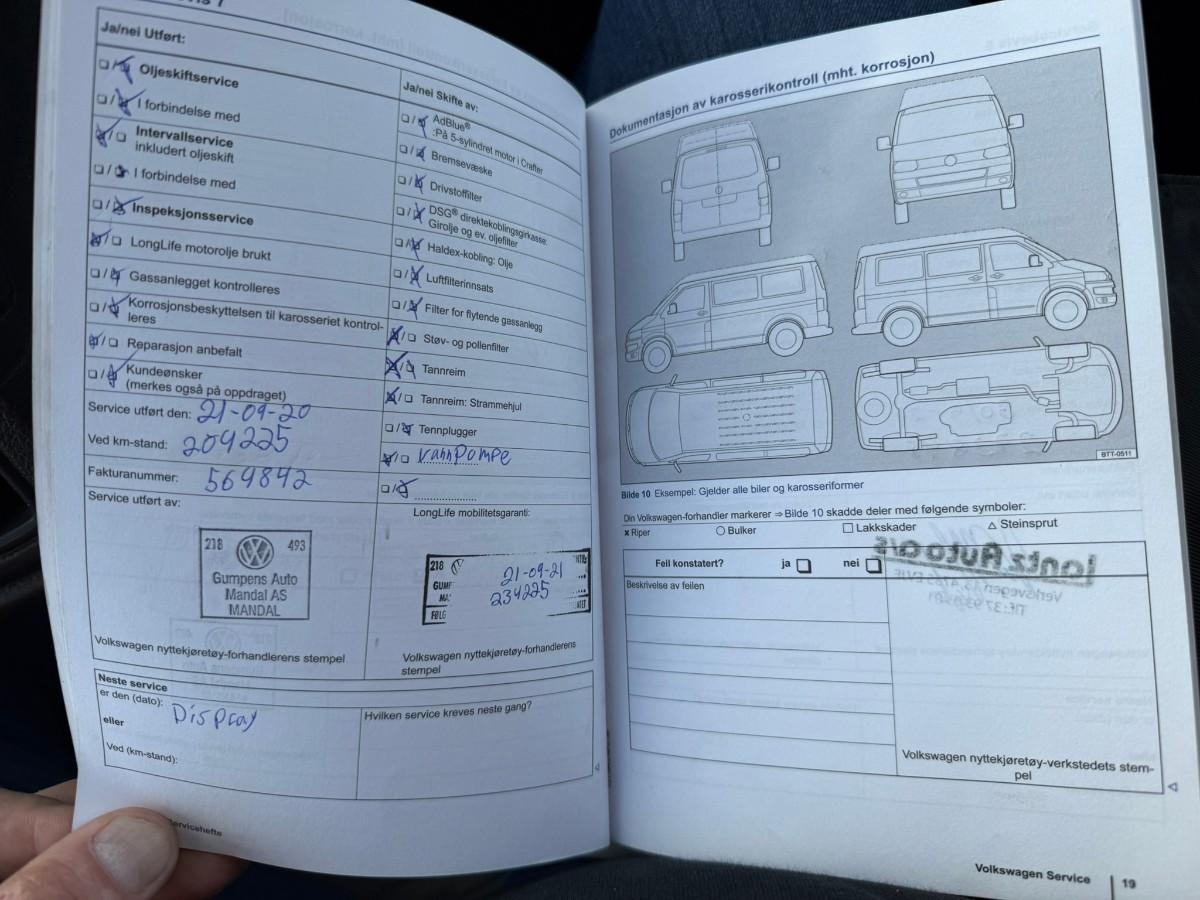 Ja/nei Utført:
Oljeskiftservice
I forbindelse med
Intervallservice
inkludert oljeskift
I forbindelse med
Inspeksjonsservice
LongLife motorolje brukt
Gassanlegget kontrolleres
Korrosjonsbeskyttelsen til karosseriet kontrol-
leres
Reparasjon anbefalt
Kundeønsker
(merkes også på oppdraget)
Service utført den: 21-09-20
Ved km-stand: 204225
Fakturanummer: 569842
Service utført av:
218 493
Gumpens Auto
Mandal AS
MANDAL
Volkswagen nyttekjøretøy-forhandlerens stempel
Ja/nei Skifte av:
AdBlue®
:På 5-sylindret motor i Crafter
Bremsevæske
Drivstoffilter
DSG® direktekoblingsgirkasse:
Girolje og ev. oljefilter
Haldex-kobling: Olje
Luftfilterinnsats
Filter for flytende gassanlegg
Støv- og pollenfilter
Tannreim
Tannreim: Strammehjul
Tennplugger
vannPompe
LongLife mobilitetsgaranti:
218
21-09-21
234225
Volkswagen nyttekjøretøy-forhandlerens
stempel
Neste service
er den (dato): Display
eller
Ved (km-stand):
Hvilken service kreves neste gang?
Servicehefte
Dokumentasjon av karosserikontroll (mht. korrosjon)
BTT-0511
Bilde 10 Eksempel: Gjelder alle biler og karosseriformer
Din Volkswagen-forhandler markerer ⇒ Bilde 10 skadde deler med følgende symboler:
× Riper ○ Bulker □ Lakkskader △ Steinsprut
Feil konstatert? ja nei
Beskrivelse av feilen
Volkswagen nyttekjøretøy-verkstedets stem-
pel
Volkswagen Service 19